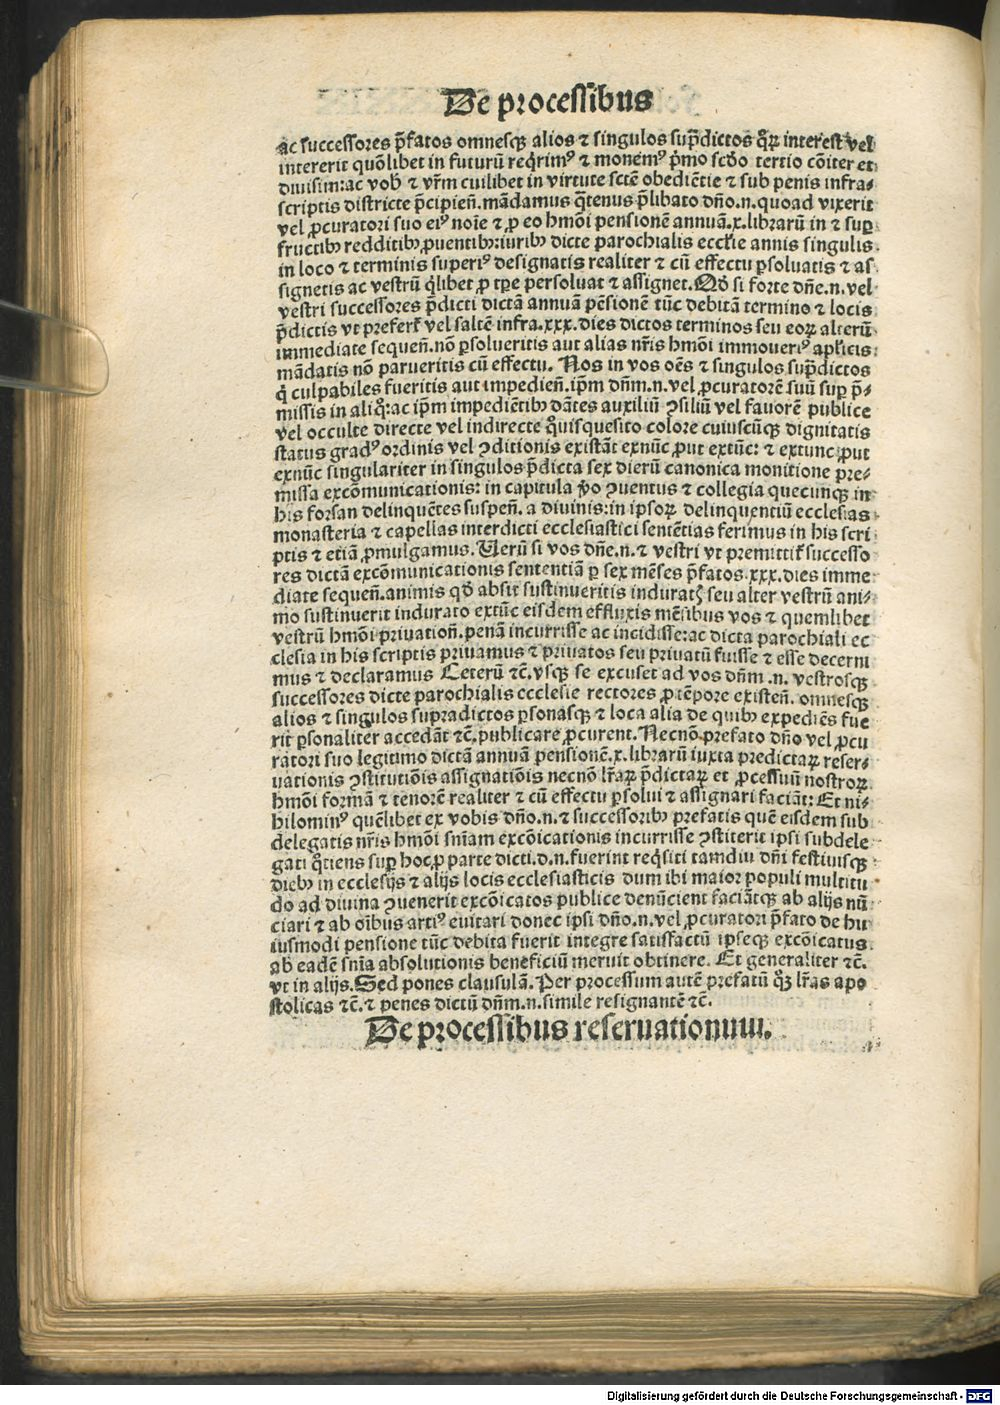 De processibus
ac successores p̄fatos omnesqꝫ alios ⁊ singulos sup̄dictos q̊ꝝ interest vel
intererit quōlibet in futurū reqͥrimꝰ ⁊ monemꝰ pͥmo scďo tertio cōiter et
diuisim: ac vobꝫ ⁊ vr̄m cuilibet in virtute scte̅ obediētie ⁊ sub penis infra⸗
scriptis districte p̄cipien̄. mādamus q̄tenus p̄libato dn̄o .n. quoad vixerit
vel ꝓcuratori suo eiꝰ noīe ⁊ ꝓ eo hmōi pensionē annuā .x. librarū in ⁊ suꝑ
fructibꝫ redditibꝫ ꝓuentibꝫ: iuribꝫ dicte parochialis eccl̄ie annis singulis
in loco ⁊ terminis superiꝰ designatis realiter ⁊ cū effectu ꝑsoluatis ⁊ as
signetis ac vestrū qͥlibet ꝓ tꝑe persoluat ⁊ assignet. Qď si forte dn̄e .n. vel
vestri successores p̄dicti dictā annuā pēsionē tūc debitā termino ⁊ locis
p̄dictis vt prefert̄ vel saltē infra .xxx. dies dictos terminos seu eoꝝ alterū
immediate sequen̄. nō ꝑsolueritis aut alias nr̄is hmōi immoueriꝰ apl̄icis
mādatis nō parueritis cū effectu. Nos in vos oēs ⁊ singulos sup̄dictos
qͥ culpabiles fueritis aut impedien̄. ip̄m dn̄m .n. vel ꝓcuratorē suū suꝑ p̄⸗
missis in aliqͦ: ac ip̄m impediētibꝫ dātes auxiliū ꝯsiliū vel fauorē publice
vel occulte directe vel indirecte qͦuisquesito colore cuiuscūqꝫ dignitatis
status gradꝰ ordinis vel ꝯditionis existāt exnūc ꝓut extūc: ⁊ extunc ꝓut
exnūc singulariter in singulos p̄dicta sex dierū canonica monitione pre⸗
missa excōmunicationis: in capitula ꝟo ꝯuentus ⁊ collegia quecunqꝫ in
his forsan delinquētes suspen̄. a diuinis: in ipsoꝝ delinquentiū ecclesias
monasteria ⁊ capellas interdicti ecclesiastici sentētias ferimus in his scri
ptis ⁊ etiā ꝓmulgamus. Verū si vos dn̄e .n. ⁊ vestri vt premittit̄ successo
res dictā excōmunicationis sententiā ꝑ sex mēses p̄fatos .xxx. dies imme
diate sequen̄. animis qď absit sustinueritis induratꝭ seu alter vestrū ani⸗
mo sustinuerit indurato extūc eisdem effluxis mēsibus vos ⁊ quemlibet
vestrū hmōi priuation̄. penā incurrisse ac incidisse: ac dicta parochiali ec
clesia in his scriptis priuamus ⁊ priuatos seu priuatū fuisse ⁊ esse decerni
mus ⁊ declaramus Ceterū ⁊c̄. vsqꝫ se excuset ad vos dn̄m .n. vestrosqꝫ
successores dicte parochialis ecclesie rectores ꝓ tēpore existen̄. omnesqꝫ
alios ⁊ singulos supradictos ꝑsonasqꝫ ⁊ loca alia de quibꝫ expediēs fue
rit ꝑsonaliter accedāt ⁊c̄. publicare ꝓcurent. Necnō prefato dn̄o vel ꝓcu
ratori suo legitimo dictā annuā pensionē .x. librarū iuxta predictaꝝ reser⸗
uationis ꝯstitutiōis assignatiōis necnō lr̄aꝝ p̄dictaꝝ et ꝓcessuū nostroꝝ
hmōi formā ⁊ tenorē realiter ⁊ cū effectu ꝑsolui ⁊ assignari faciāt: Et ni⸗
hilominꝰ quēlibet ex vobis dn̄o .n. ⁊ successoribꝫ prefatis quē eisdem sub
delegatis nr̄is hmōi sn̄iam excōicationis incurrisse ꝯstiterit ipsi subdele
gati qͦtiens suꝑ hoc ꝓ parte dicti .d.n. fuerint reqͥsiti tamdiu dn̄i festiuisqꝫ
diebꝫ in ecclesijs ⁊ alijs locis ecclesiasticis dum ibi maior populi multitu
do ad diuina ꝯuenerit excōicatos publice denūcient faciātqꝫ ab alijs nū
ciari ⁊ ab oībus artiꝰ euitari donec ipsi dn̄o .n. vel ꝓcuratori p̄fato de hu
iusmodi pensione tūc debita fuerit integre satisfactū ipseqꝫ excōicatus
ab eadē sn̄ia absolutionis beneficiū meruit obtinere. Et generaliter ⁊c̄.
vt in alijs. Sed pones clausulā. Per processum autē prefatū qͣꝫ lr̄as apo
stolicas ⁊c̄. ⁊ penes dictū dn̄m .n. simile resignantē ⁊c̄.
De processibus reseruationum.
Digitalisierung gefördert durch die Deutsche Forschungsgemeinschaft - DFG